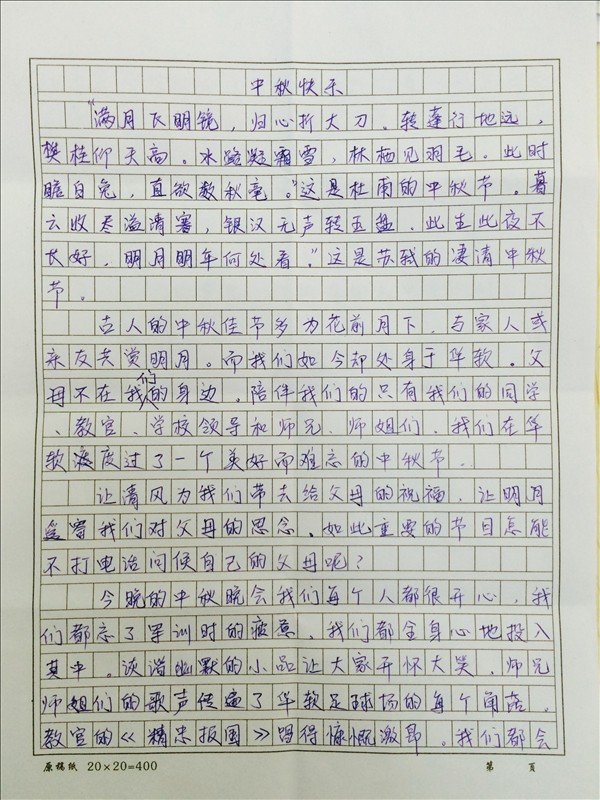 中秋快乐
“满月飞明镜,归心折大刀。转蓬行地远,
攀桂仰天高。水路凝霜雪,林栖见羽毛。此时
瞻白兔,直欲数秋毫。”这是杜甫的中秋节。暮
云收尽溢清寒,银汉无声转玉盘。此生此夜不
长好,明月明年何处看。”这是苏轼的凄清中秋
节。
古人的中秋佳节多为花前月下,与家人或
亲友共赏明月。而我们如今却处身于华软。父
母不在我们的身边。陪伴我们的只有我们的同学
、教官、学校领导和师兄、师姐们。我们在华
软渡度过了一个美好而难忘的中秋节。
让清风为我们带去给父母的祝福,让明月
我们对父母的思念。如此重要的节日怎能
不打电话问候自己的父母呢?
今晚的中秋晚会我们每个人都很开心,我
们都忘了军训时的疲惫,我们都全身心地投入
其中。诙谐幽默的小品让大家开怀大笑,师兄
师姐们的歌声传遍了华软足球场的每个角落。
教官的《精忠报国》唱得慷慨激昂。我们都会
原稿纸 20×20=400 第 页